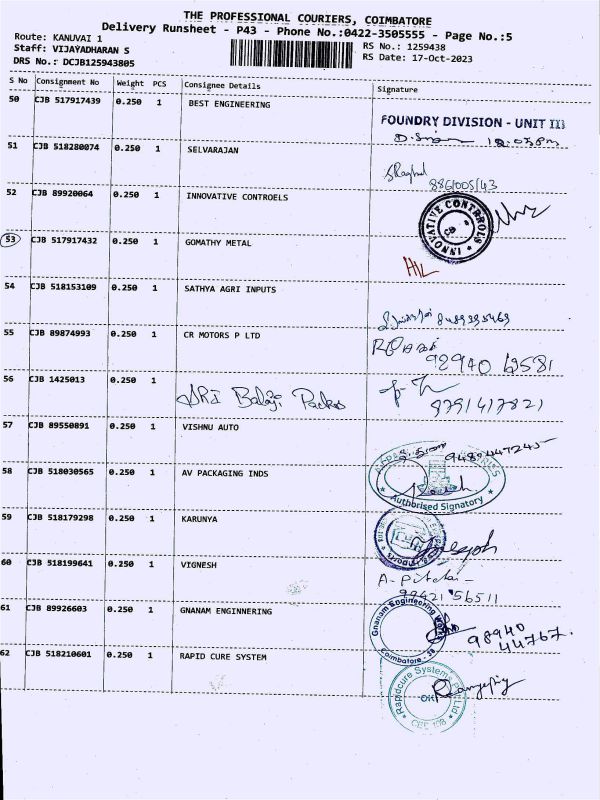 THE PROFESSIONAL COURIERS, COIMBATORE
Delivery Runsheet - P43 - Phone No.:0422-3505555 - Page No.:5
Route: KANUVAI 1
Staff: VIJAYADHARAN S
DRS No.: DCJB125943805
RS No.: 1259438
RS Date: 17-Oct-2023
S No Consignment No Weight PCS Consignee Details Signature
50 CJB 517917439 0.250 1 BEST ENGINEERING
FOUNDRY DIVISION - UNIT III
51 CJB 518280074 0.250 1 SELVARAJAN
886/005/43
52 CJB 89920064 0.250 1 INNOVATIVE CONTROELS
INNOVATIVE CONTROLS
CB
53 CJB 517917432 0.250 1 GOMATHY METAL
54 CJB 518153109 0.250 1 SATHYA AGRI INPUTS
55 CJB 89874993 0.250 1 CR MOTORS P LTD
56 CJB 1425013 0.250 1 SRI Balaji Packs
8791417821
57 CJB 89550891 0.250 1 VISHNU AUTO
58 CJB 518030565 0.250 1 AV PACKAGING INDS
Authorised Signatory
59 CJB 518179298 0.250 1 KARUNYA
60 CJB 518199641 0.250 1 VIGNESH
99421 56511
61 CJB 89926603 0.250 1 GNANAM ENGINNERING
Gnanam Engineering Works
Coimbatore - 38
98940
44767.
62 CJB 518210601 0.250 1 RAPID CURE SYSTEM
Rapidcure Systems Pvt Ltd
CBE 108